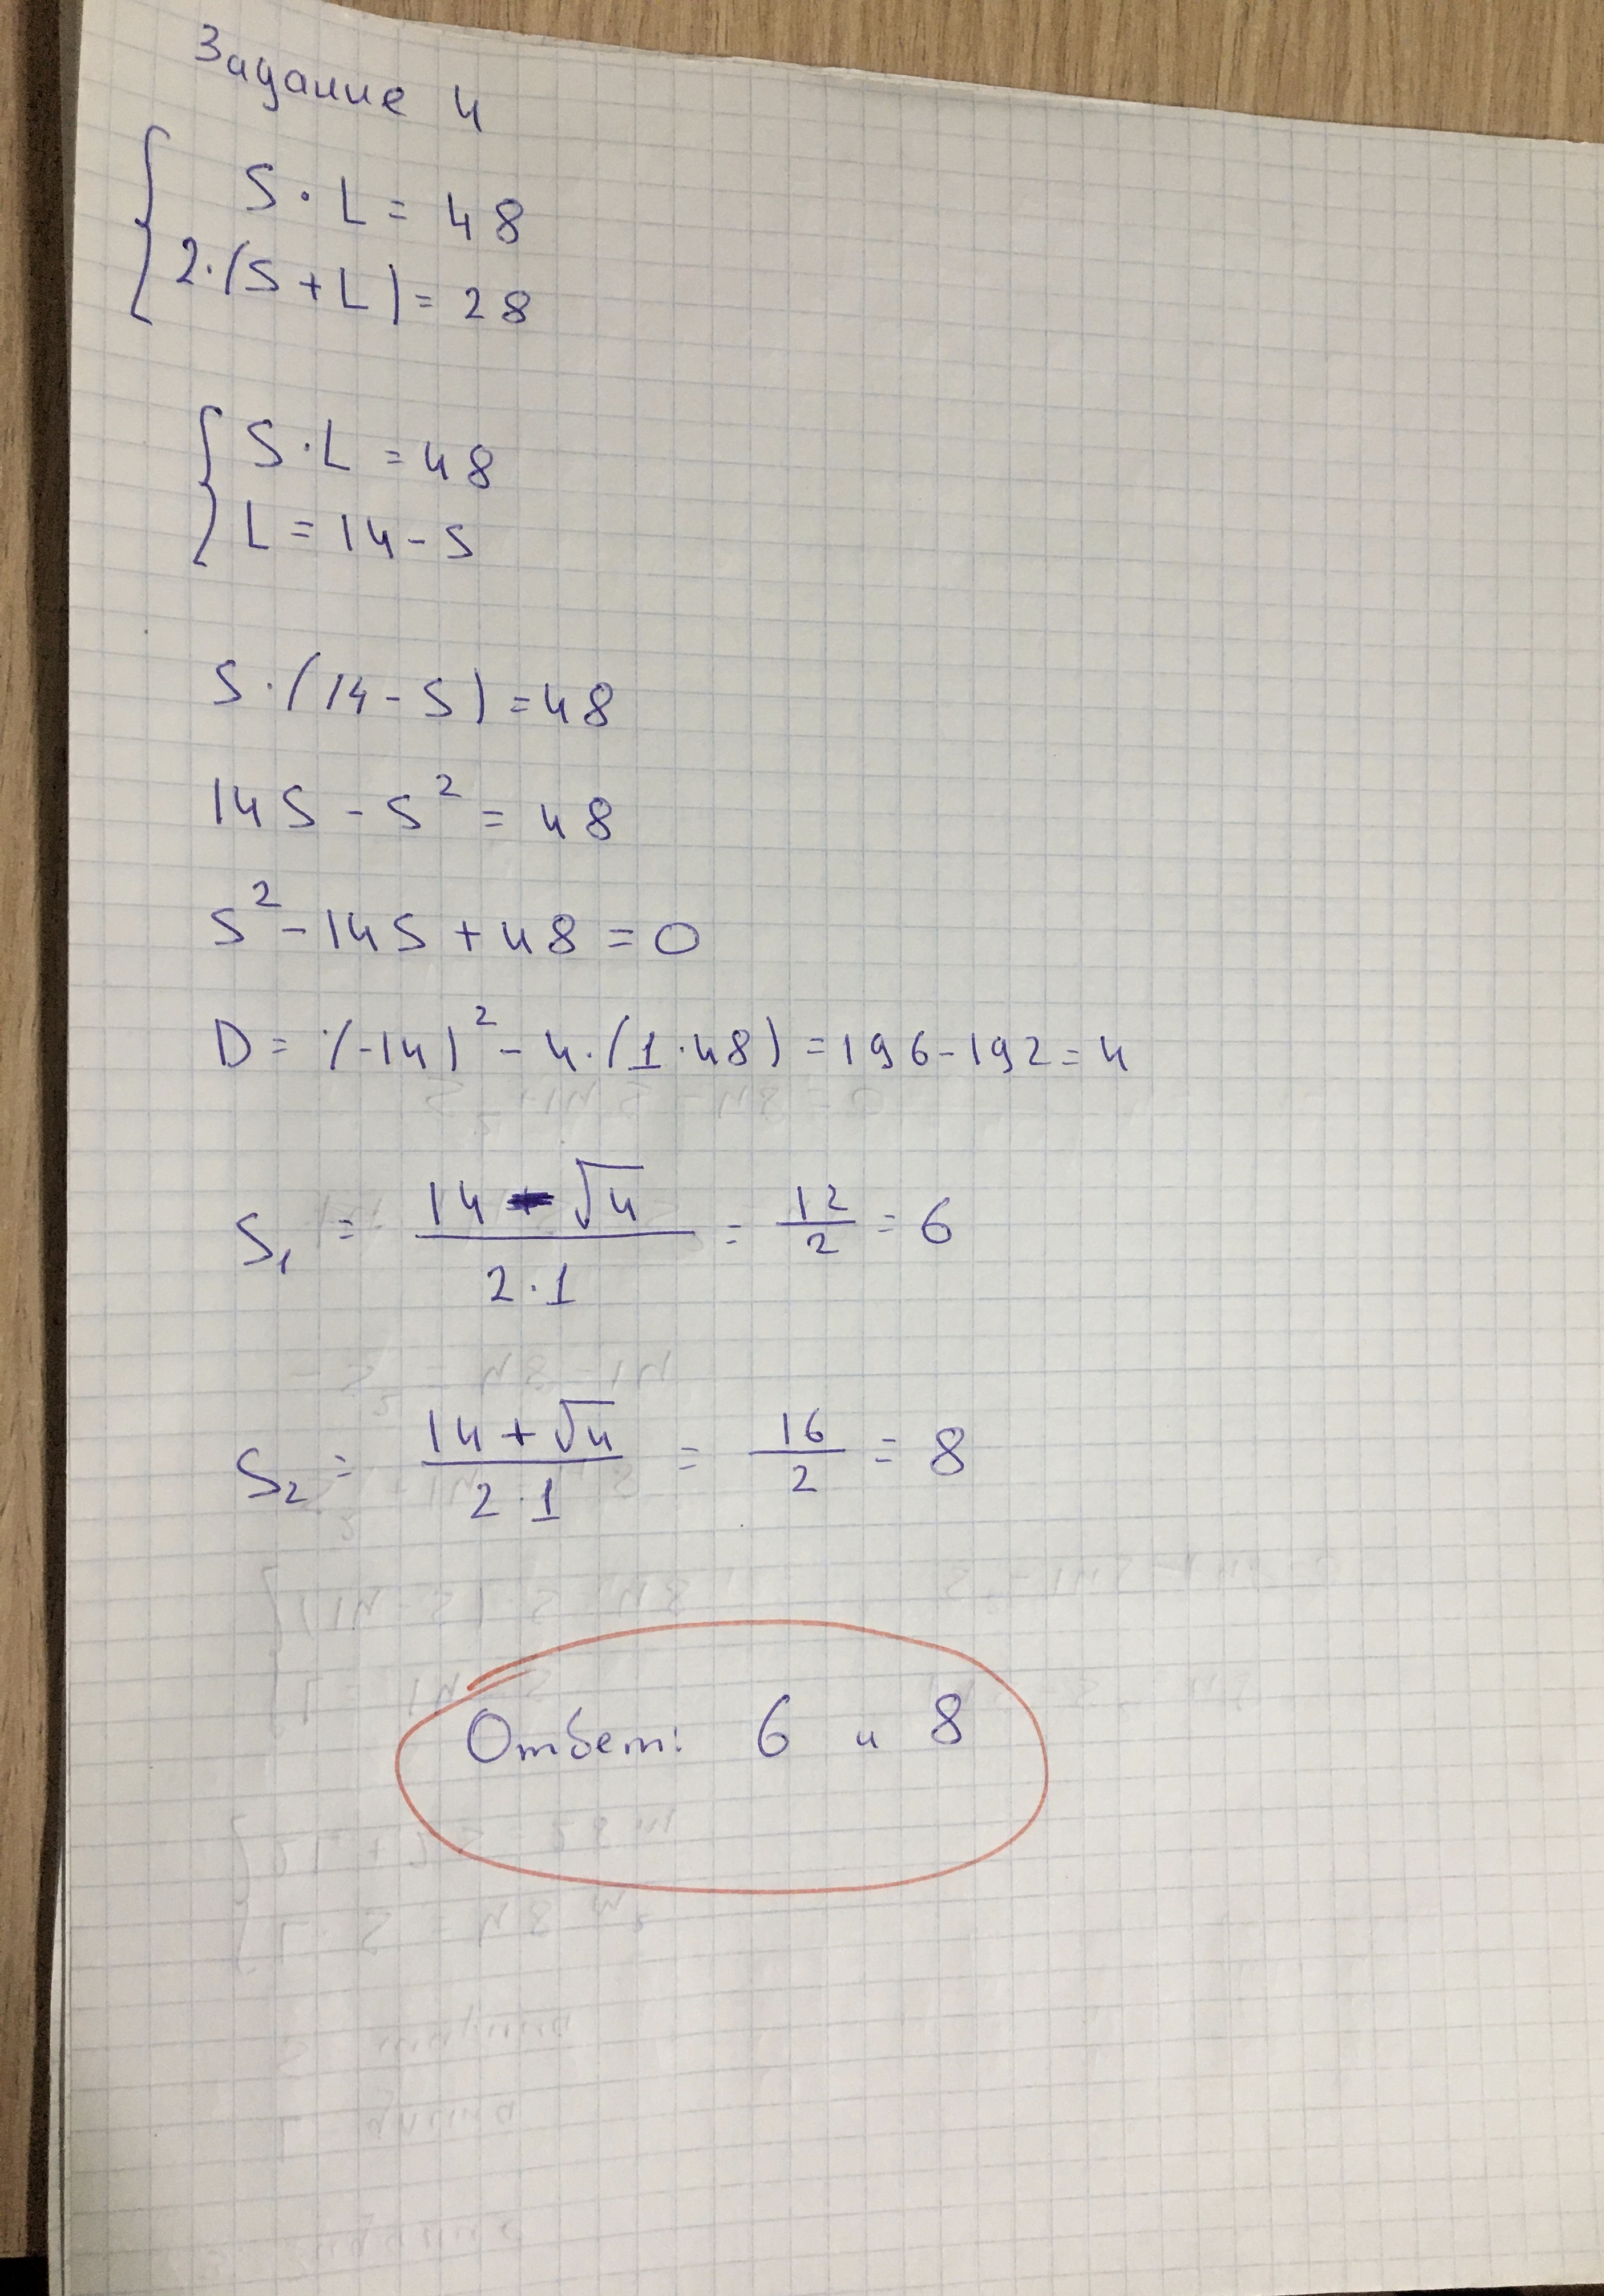 Задание 4
S · L = 48
2·(S + L) = 28
S · L = 48
L = 14 - S
S · (14 - S) = 48
14S - S² = 48
S² - 14S + 48 = 0
D = (-14)² - 4·(1·48) = 196 - 192 = 4
S₁ = (14 - √4)/(2·1) = 12/2 = 6
S₂ = (14 + √4)/(2·1) = 16/2 = 8
Ответ: 6 и 8